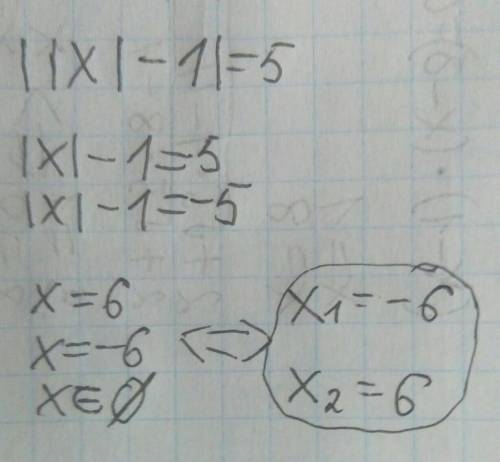 ||x|-1|=5
|x|-1=5
|x|-1=-5
x=6
x=-6
x∈∅
⟺
x₁=-6
x₂=6